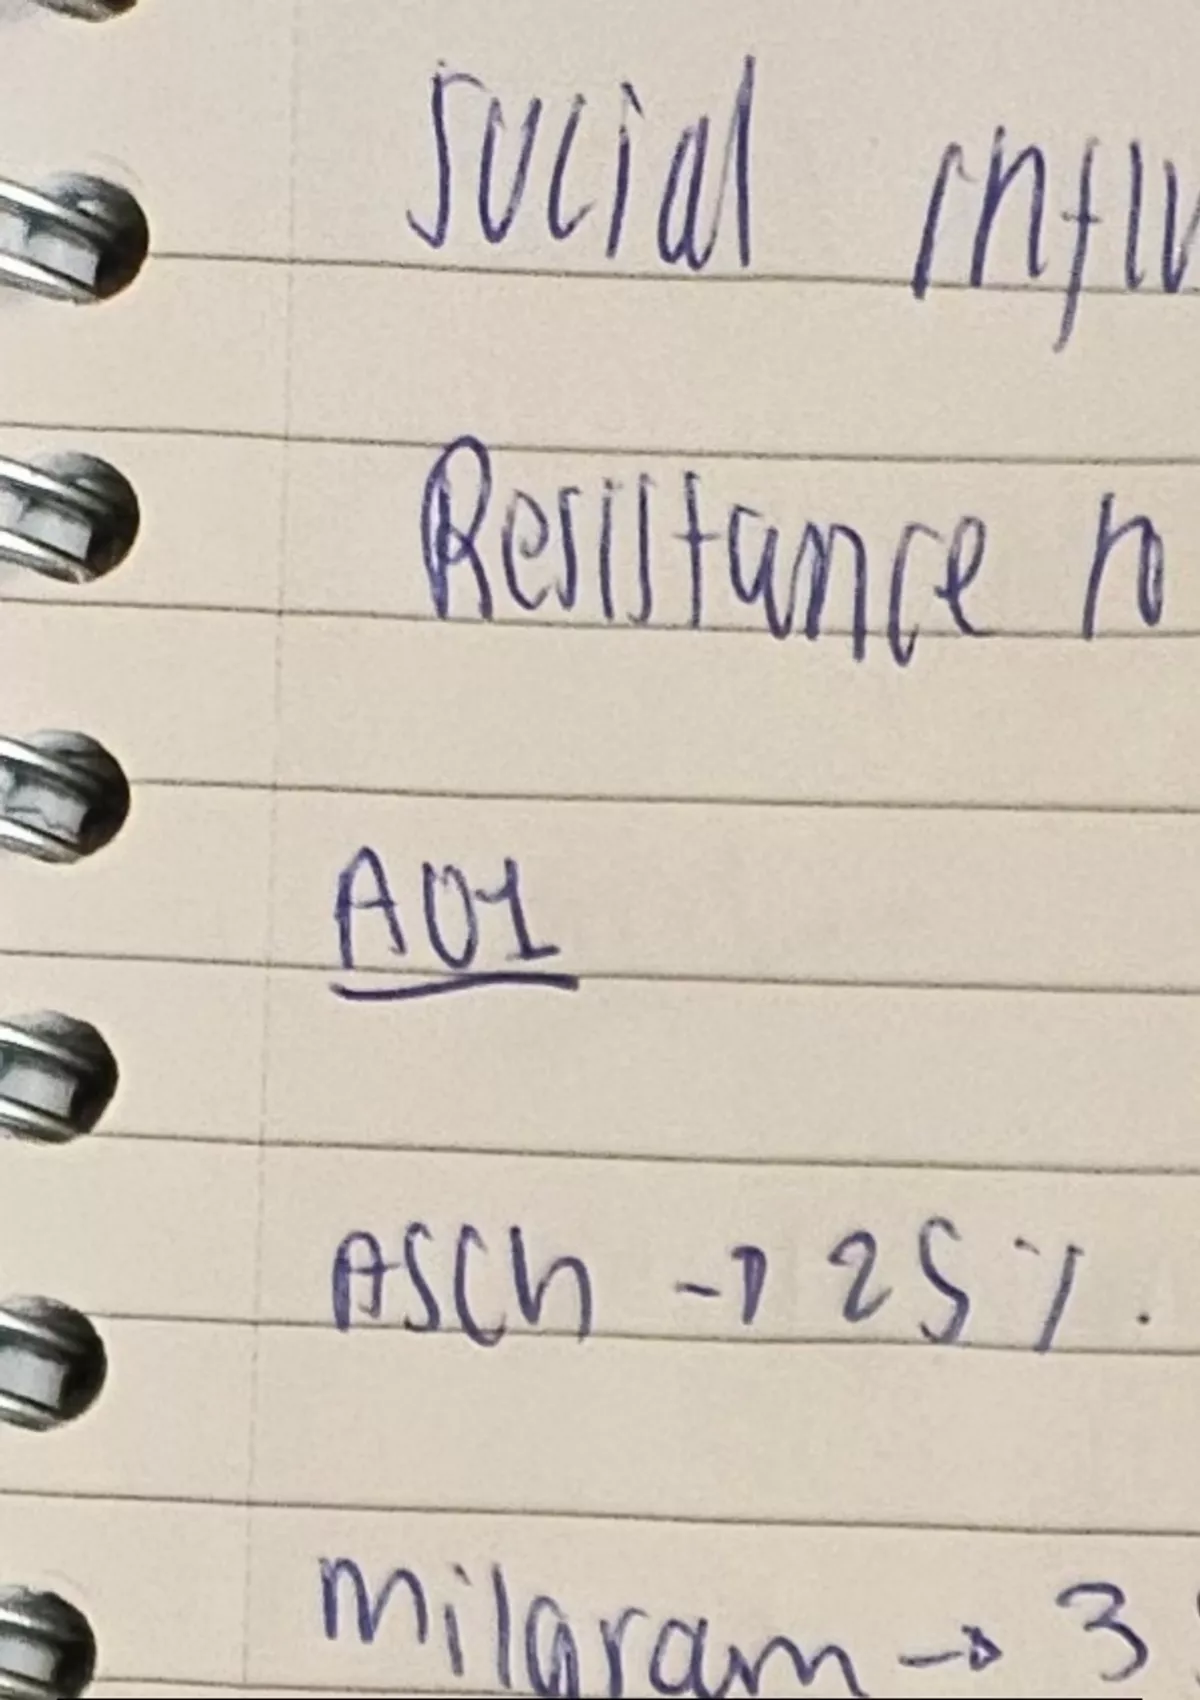 Social influ
Resistance to
AO1
ASCh → 25%.
Milgram → 3